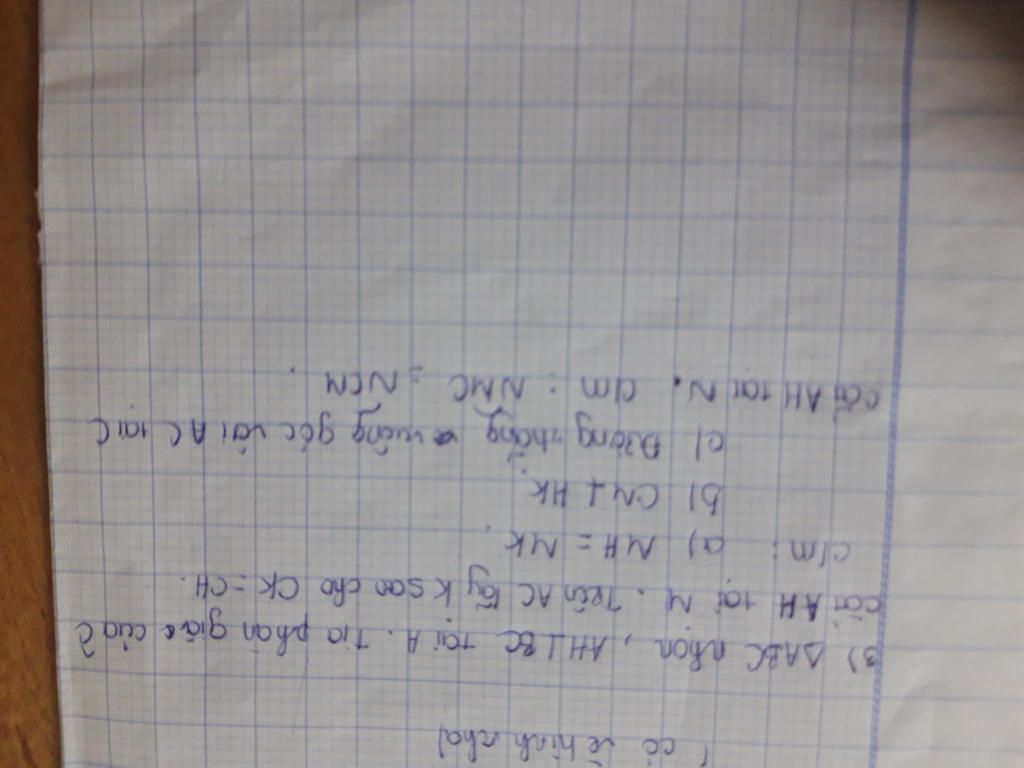 ( có vẽ hình nha)
3) ΔABC nhọn, AH⊥BC tại H. Tia phân giác của Ĉ
cắt AH tại M. Trên AC lấy K sao cho CK = CH.
c/m: a) MH = MK.
b) CM ⊥ HK
c) Đường thẳng vuông góc với AC tại C
cắt AH tại N. c/m: NMC = NCM.